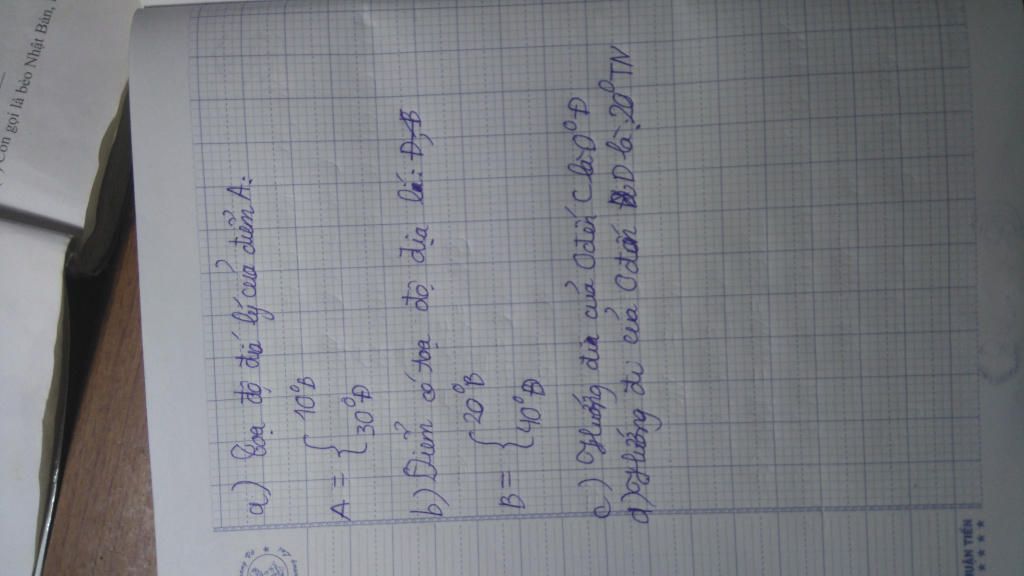 Còn gọi là bèo Nhật Bản,
a) Toạ độ địa lý của điểm A:
A = { 10⁰B
30⁰Đ
b) Điểm có toạ độ địa lí: Đ,B
B = { 20⁰B
40⁰Đ
c) Hướng đi của O đến C là: 0⁰Đ
d) Hướng đi của O đến D là: 20⁰TN
UẬN TIẾN